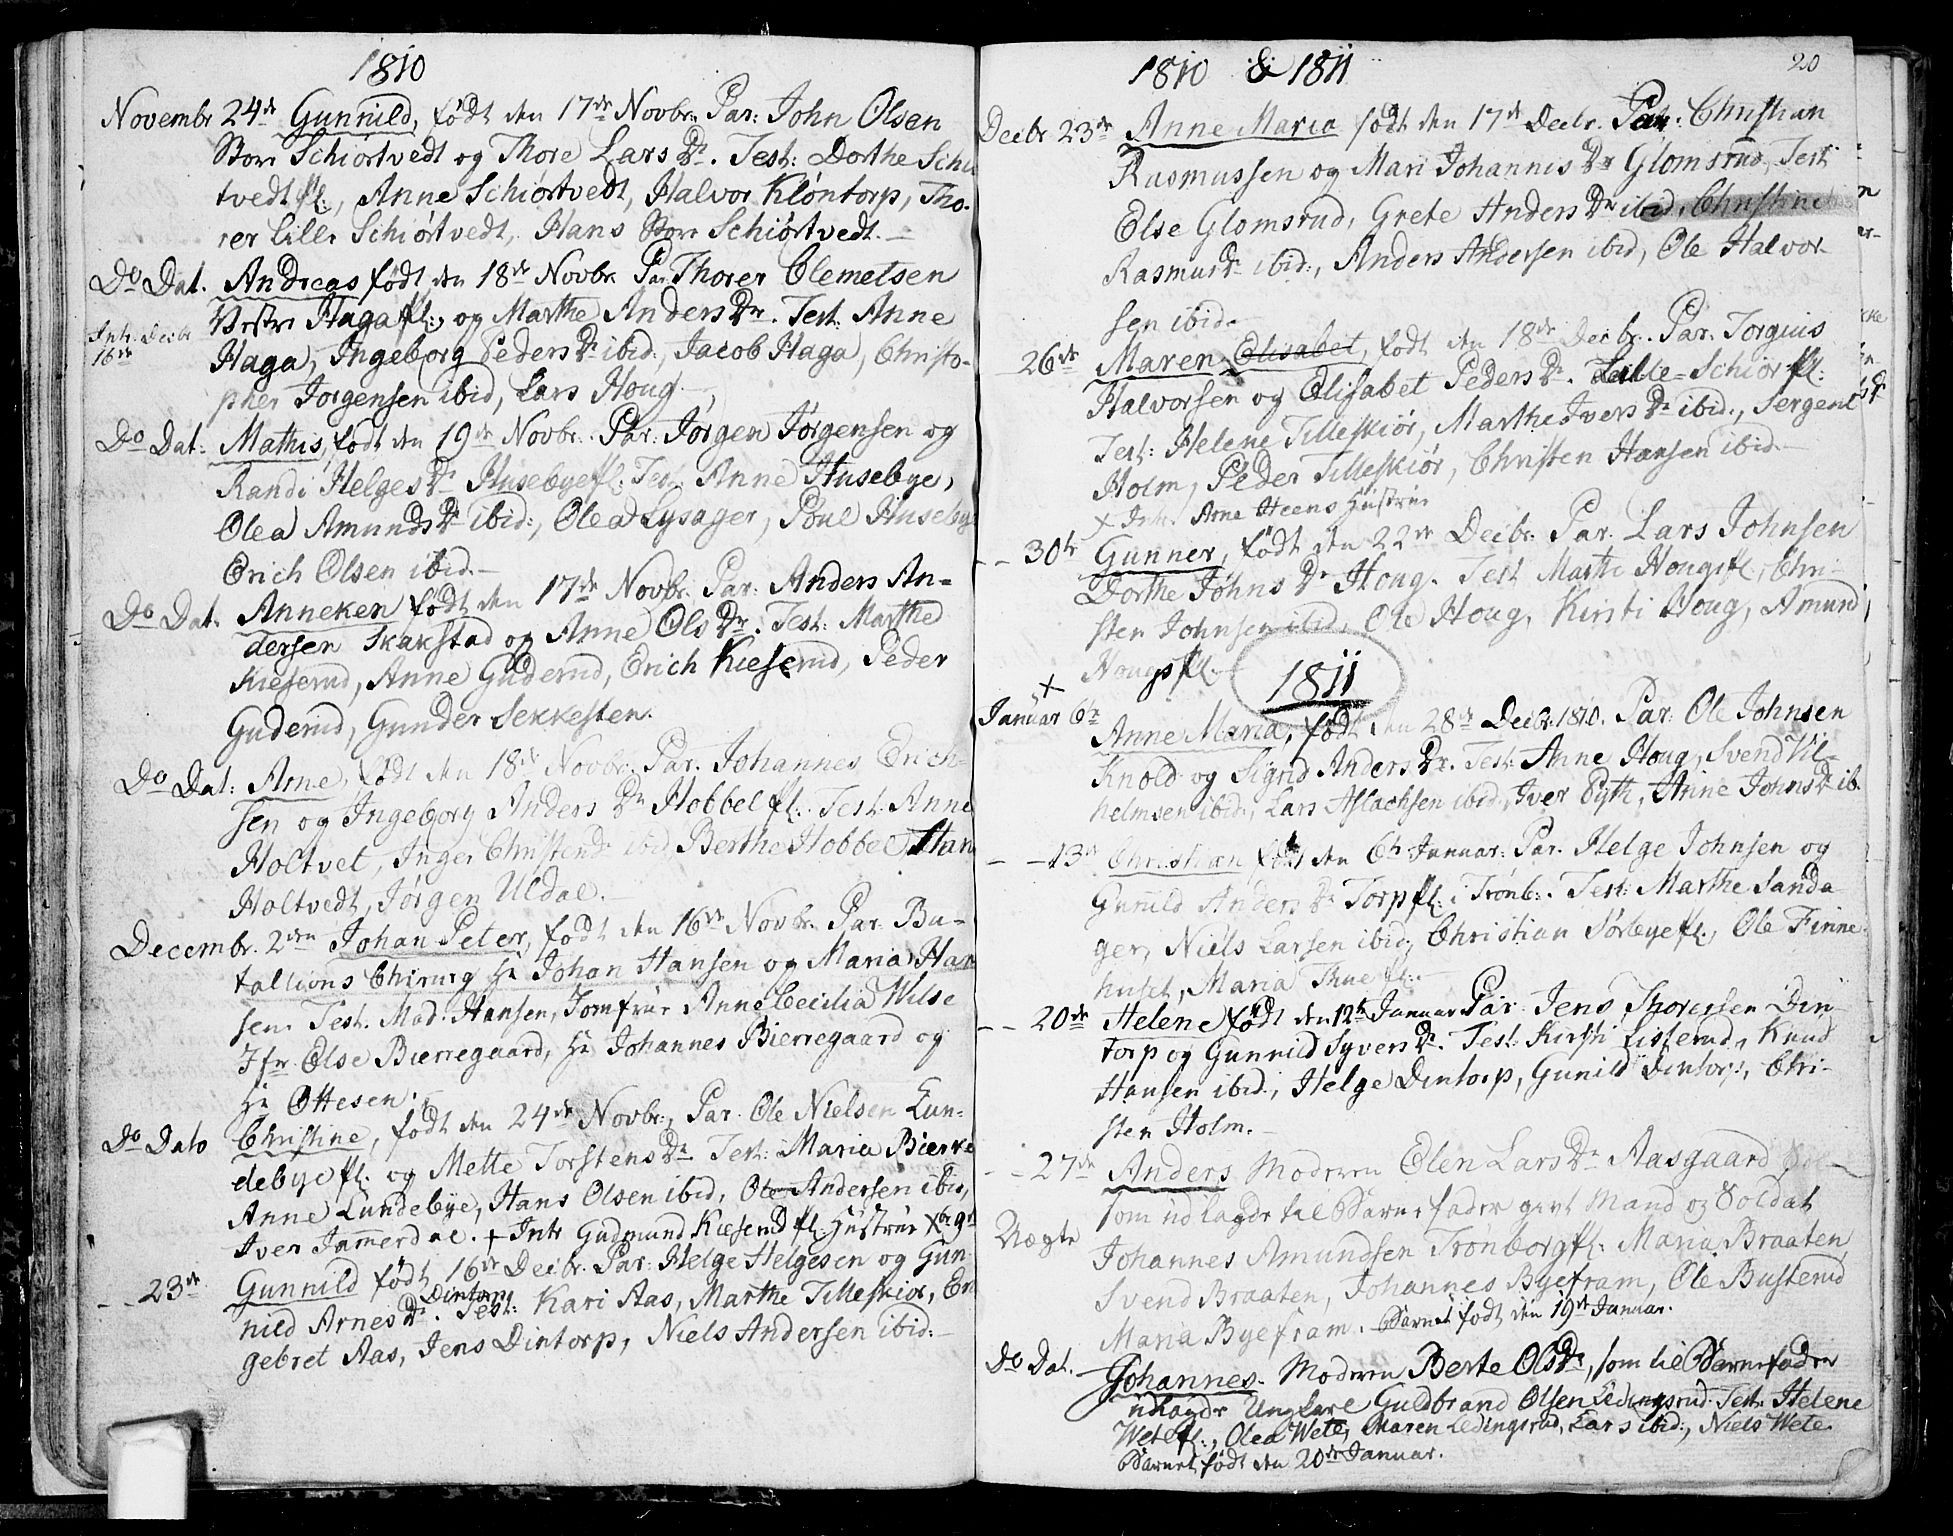 1810
Novembr 24de Gunnild, født den 17de Novbr. Par: John Olsen
Store Schiørtvedt og Thore Lars Dr. Test: Dorthe Schiø
tvedt fl:, Anne Schiørtvedt, Halvor Kløntorp, Tho-
rer Lille Schiørtvedt, Hans Store Schiørtvedt.
Do Dat. Andreas født den 18de Novbr. Par Thorer Clemetsen
Vestre Haga fl:, og Marthe Anders Dr. Test: Anne
Intr. Decbr
16de
Haga, Ingeborg Peders Dr ibid:, Jacob Haga, Christo-
pher Jørgensen ibid, Lars Houg.
Do Dat: Mathis, født den 19de Novbr. Par: Jørgen Jørgensen og
Randi Helges Dr Husebye fl: Test: Anne Husebye,
Olea Amunds Dr ibid:, Olea Lysager, Poul Huseby
Erich Olsen ibid.
Do Dat. Anneken født den 17de Novbr. Par: Anders An-
dersen Skakstad og Anne Ols Dr. Test: Marthe
Kieserud, Anne Guderud, Erich Kieserud, Peder
Guderud, Gunder Sekkesten.
Do Dat: Arne, født den 18de Novbr. Par. Johannes Erich-
sen og Ingeborg Anders Dr Hobbel fl: Test: Anne
Holtvet, Inger Christens Dr ibid Berthe Hobbel, Han
Holtvedt, Jørgen Uldal.
Decembr. 2den Johan Peter, født den 16de Novbr. Par. Ba-
tallions Chirurg Hr Johan Hansen og Maria Han
sen. Test. Mad. Hansen, Jomfrue Anne Cecilia Wilse
Jfr Else Bierregaard, Hr Johannes Bierregaard og
Hr Ottesen.
Do Dato Christine, født den 24de Novbr., Par. Ole Nielsen Lun-
debye fl. og Mette Torstens Dr Test: Maria Bierke
Anne Lundebye, Hans Olsen ibid, Ole Andersen ibid,
Iver Jammerdal. + Intr Gudmund Kieserud fl: Hustrue Xbr 9de
- - 23de Gunnild født 16de Decbr. Par: Helge Helgesen og Gun-
Dintorp
nild Arnes Dr. Test: Kari Aas, Marthe Tilleskiør, En
gebret Aas, Jens Dintorp, Niels Andersen ibid:
1810 & 1811
20
Decbr 23de Anne Maria født den 17de Decbr. Par: Christian
Rasmussen og Mari Johannis Dr Glomsrud, Test
Else Glomsrud, Grete Anders Dr ibid, Christine
Rasmus Dr ibid:, Anders Andersen ibid, Ole Halvor-
sen ibid.
26de Maren Elisabet, født den 18de Decbr. Par. Torguis
Halvorsen og Elisabet Peders Dr. Lille-Schiør fl:
Test: Helene Tilleskiør, Marthe Ivers Dr ibid., Sergent
Holm, Peder Tilleskiør, Christen Hansen ibid.
+ Intr. Arne Heens Hustrue
- - 30te Gunner, født den 22de Decbr. Par. Lars Johnsen
Dorthe Johns Dr Houg. Test Marthe Hougs fl, Chri-
sten Johnsen ibid, Ole Houg, Kirsti Houg, Amund
Hougs fl.
1811
+
Januar 6te Anne Maria, født den 28de Decbr. 1810. Par: Ole Johnsen
Knold og Sigrid Anders Dr. Test: Anne Houg, Svend Vil-
helmsen ibid:, Lars Aslachsen ibid., Iver Pytt, Anne Johns Dr ib.
- - 13de Christian født den 6te Januar: Par. Helge Johnsen og
Gunild Anders Dr Torp fl: i Trønb:. Test: Marthe Sanda
ger, Niels Larsen ibid, Christian Sørbye fl:, Ole Finne-
huset, Maria Thue fl:
- - 20de Helene født den 12te Januar Par: Jens Thorersen Din-
torp og Gunnild Syvers Dr. Test: Kirsti Listerud, Knud
Hansen ibid:, Helge Dintorp, Gunild Dintorp, Chri-
sten Holm.
- - 27de Anders Moderen Elen Lars Dr Aasgaard
som udlagde til Barnefader givt Mand og Soldat
Uægte
Johannes Amundsen Trønborg fl: Maria Braaten
Svend Braaten, Johannes Byefram, Ole Busterud
Maria Byefram. Barnet født den 19de Januar.
Do Dat. Johannes. Moderen Berte Ols Dr, som til Barnefader
udlagde Ungkarl Guldbrand Olsen Ledingsrud. Test. Helene
Wete fl:, Olea Wete, Maren Ledingsrud, Lars ibid:, Niels Wete
Barnet født den 20de Januar.